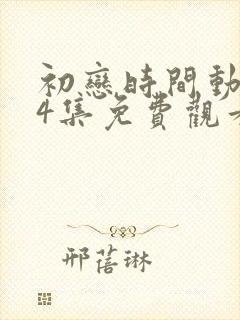 初戀時間動
4集免費觀看
邢蓓琳